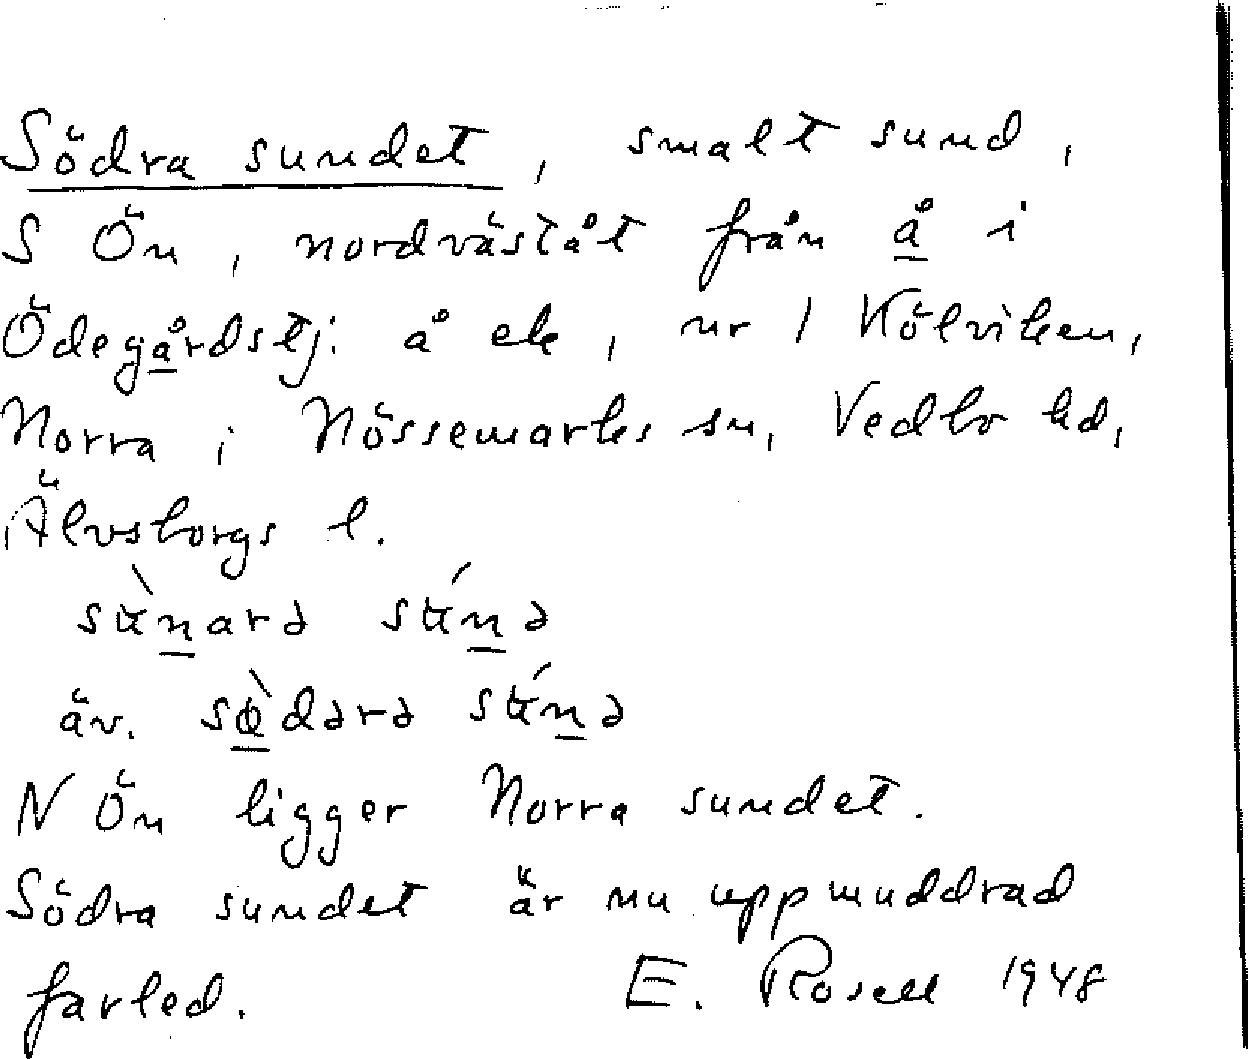 Södra sundet, smalt sund,
S Ön, nordväståt från å i
Ödegårdstj: å ek, nr 1 Kölviken,
Norra i Nössemarks sn, Vedbo hd,
Älvsborgs l.
sʉ̀narə sʉ́nə
äv. sø̀dərə sʉ́nə
N Ön ligger Norra sundet.
Södra sundet är nu uppmuddrad
farled. E. Rosell 1948